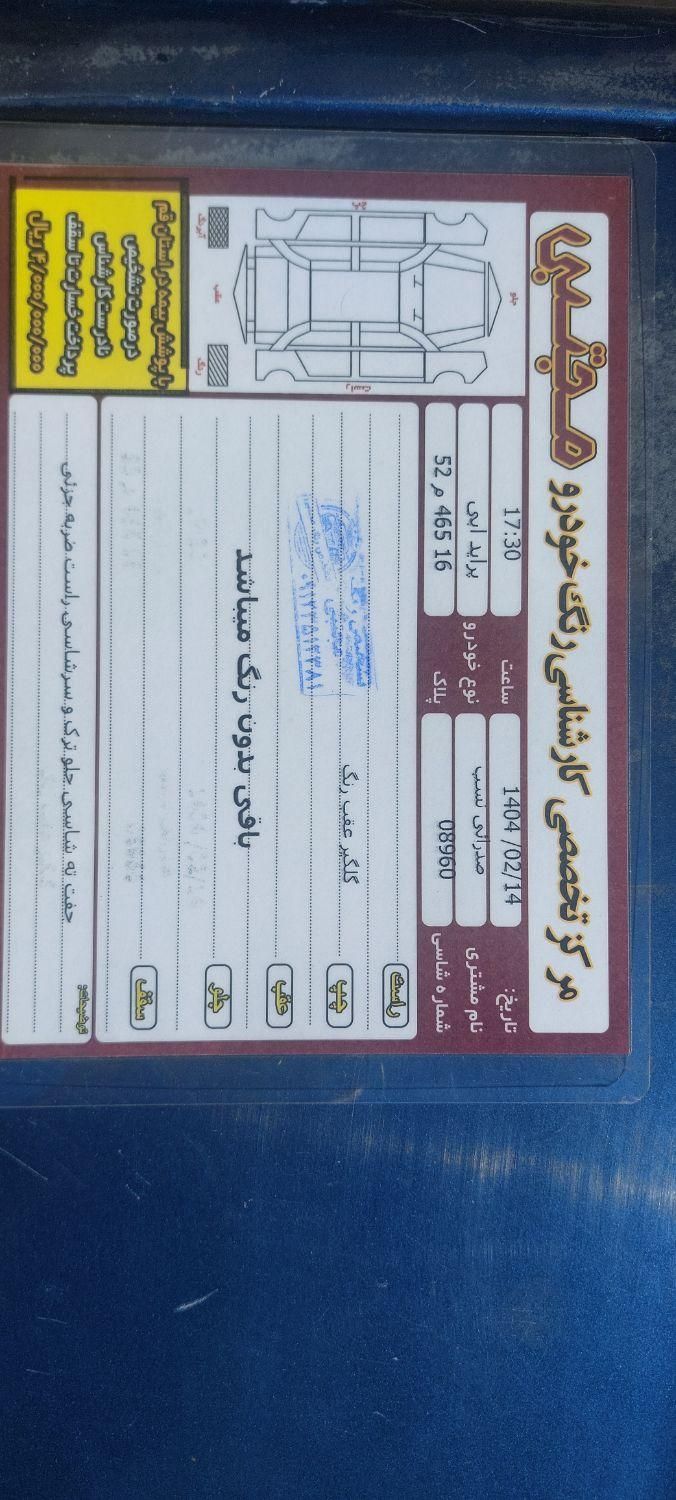 مرکز تخصصی کارشناسی رنگ خودرو مجتبی
تاریخ: 1404/02/14 ساعت 17:30
نام مشتری صدرائی نسب نوع خودرو پراید ابی
شماره شاسی 08960 پلاک 52 م 465 16
جلو
چپ
راست
عقب
رنگ
راست
چپ گلگیر عقب رنگ
عقب
باقی بدون رنگ میباشد
جلو
سقف
با پوشش بیمه در استان قم
در صورت تشخیص
نادرست کارشناس
پرداخت خسارت تا سقف
۴/۰۰۰/۰۰۰/۰۰۰ ریال
توضیحات:
جفت ته شاسی جلو ترک و سرشاسی راست ضربه جزئی